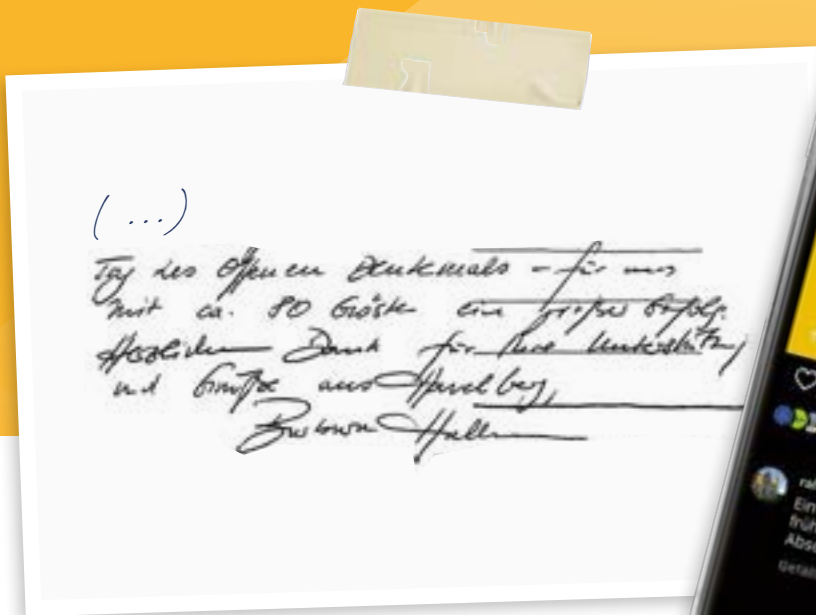 (...)
Tag des Offenen Denkmals - für uns
mit ca. 80 Gästen ein großer Erfolg.
Herzlichen Dank für Ihre Unterstützung
und Grüße aus
Ein
früh
Abso
Gefäll